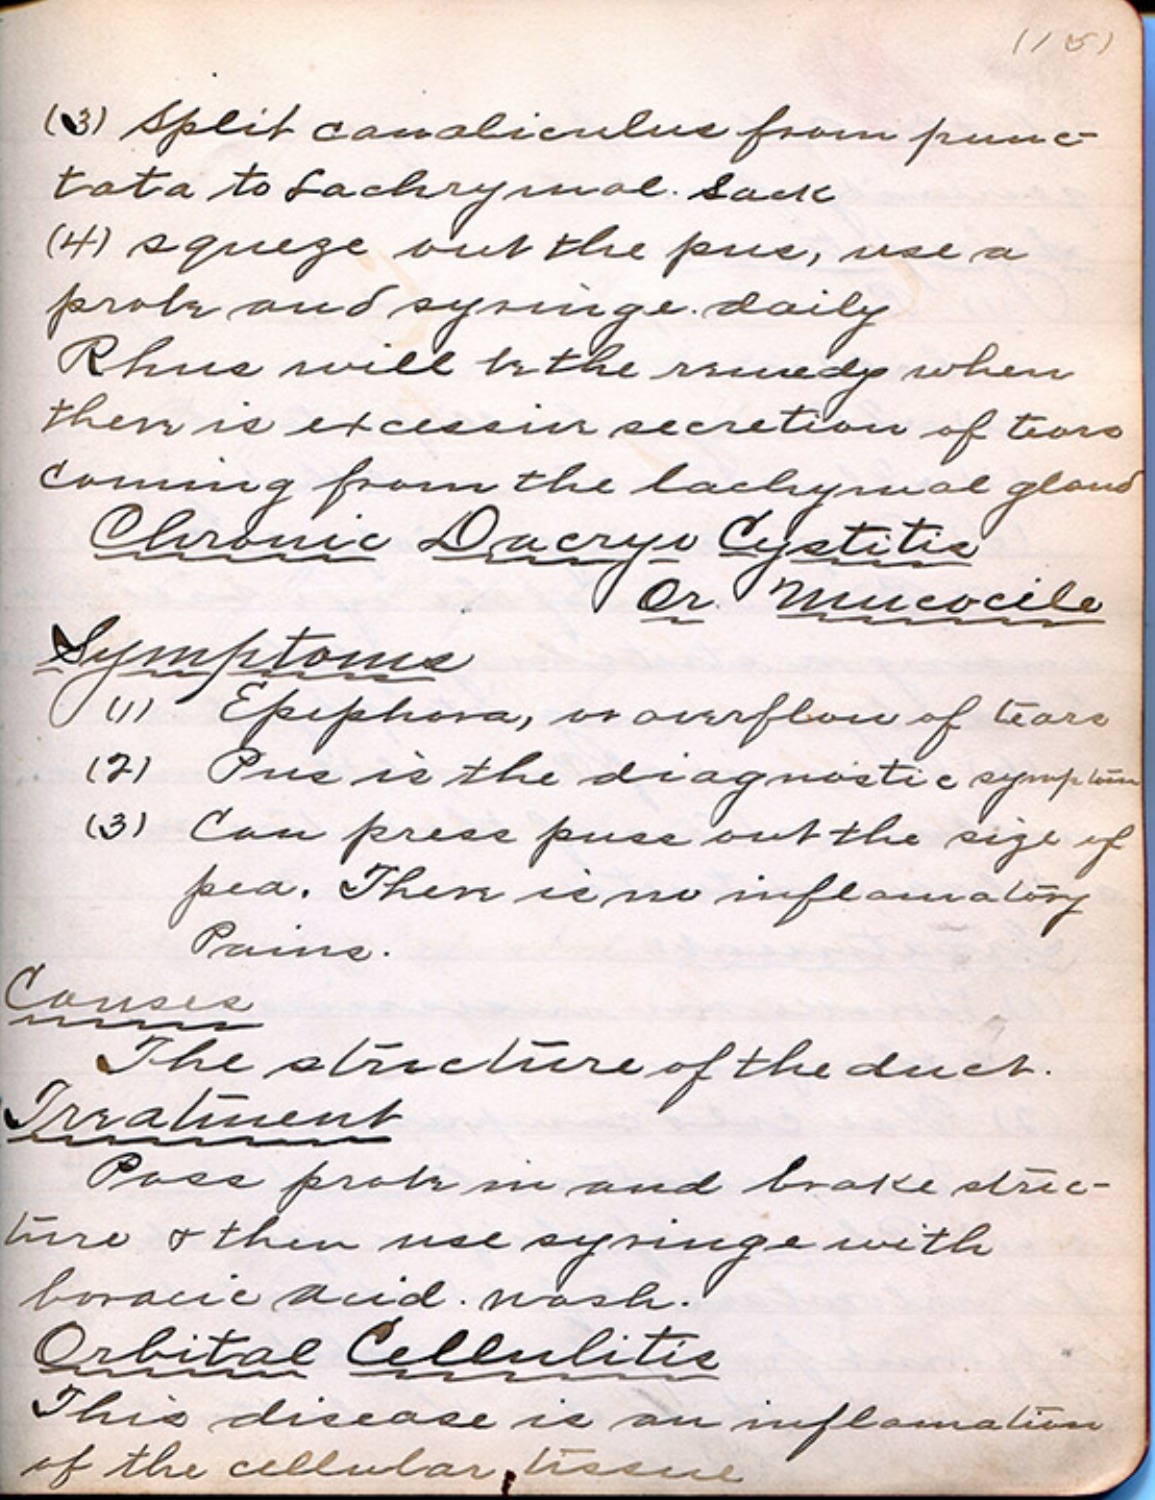 (15)
(3) Split canaliculus from punc-
tata to Lachrymal. Sack
(4) squeze out the pus, use a
probe and syringe. daily
Rhus will be the remedy when
there is excessive secretion of tears
coming from the lachymal gland
Chronic Dacryo Cystitis
Or. Mucocile
Symptoms
(1) Epiphora, or overflow of tears
(2) Pus is the diagnostic symptom
(3) Can press puss out the size of
pea. There is no inflamatory
Pains.
Causes
The stricture of the duct.
Treatment
Pass probe in and brake stric-
ture & then use syringe with
boracic acid. wash.
Orbital Cellulitis
This disease is an inflamation
of the cellular tissue